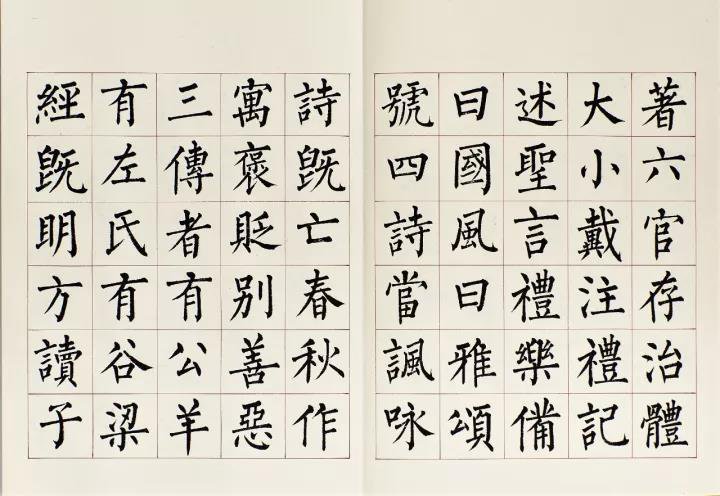 著六官存治體
大小戴注禮記
述聖言禮樂備
曰國風曰雅頌
號四詩當諷咏
詩既亡春秋作
寓褒貶别善惡
三傳者有公羊
有左氏有谷梁
經既明方讀子